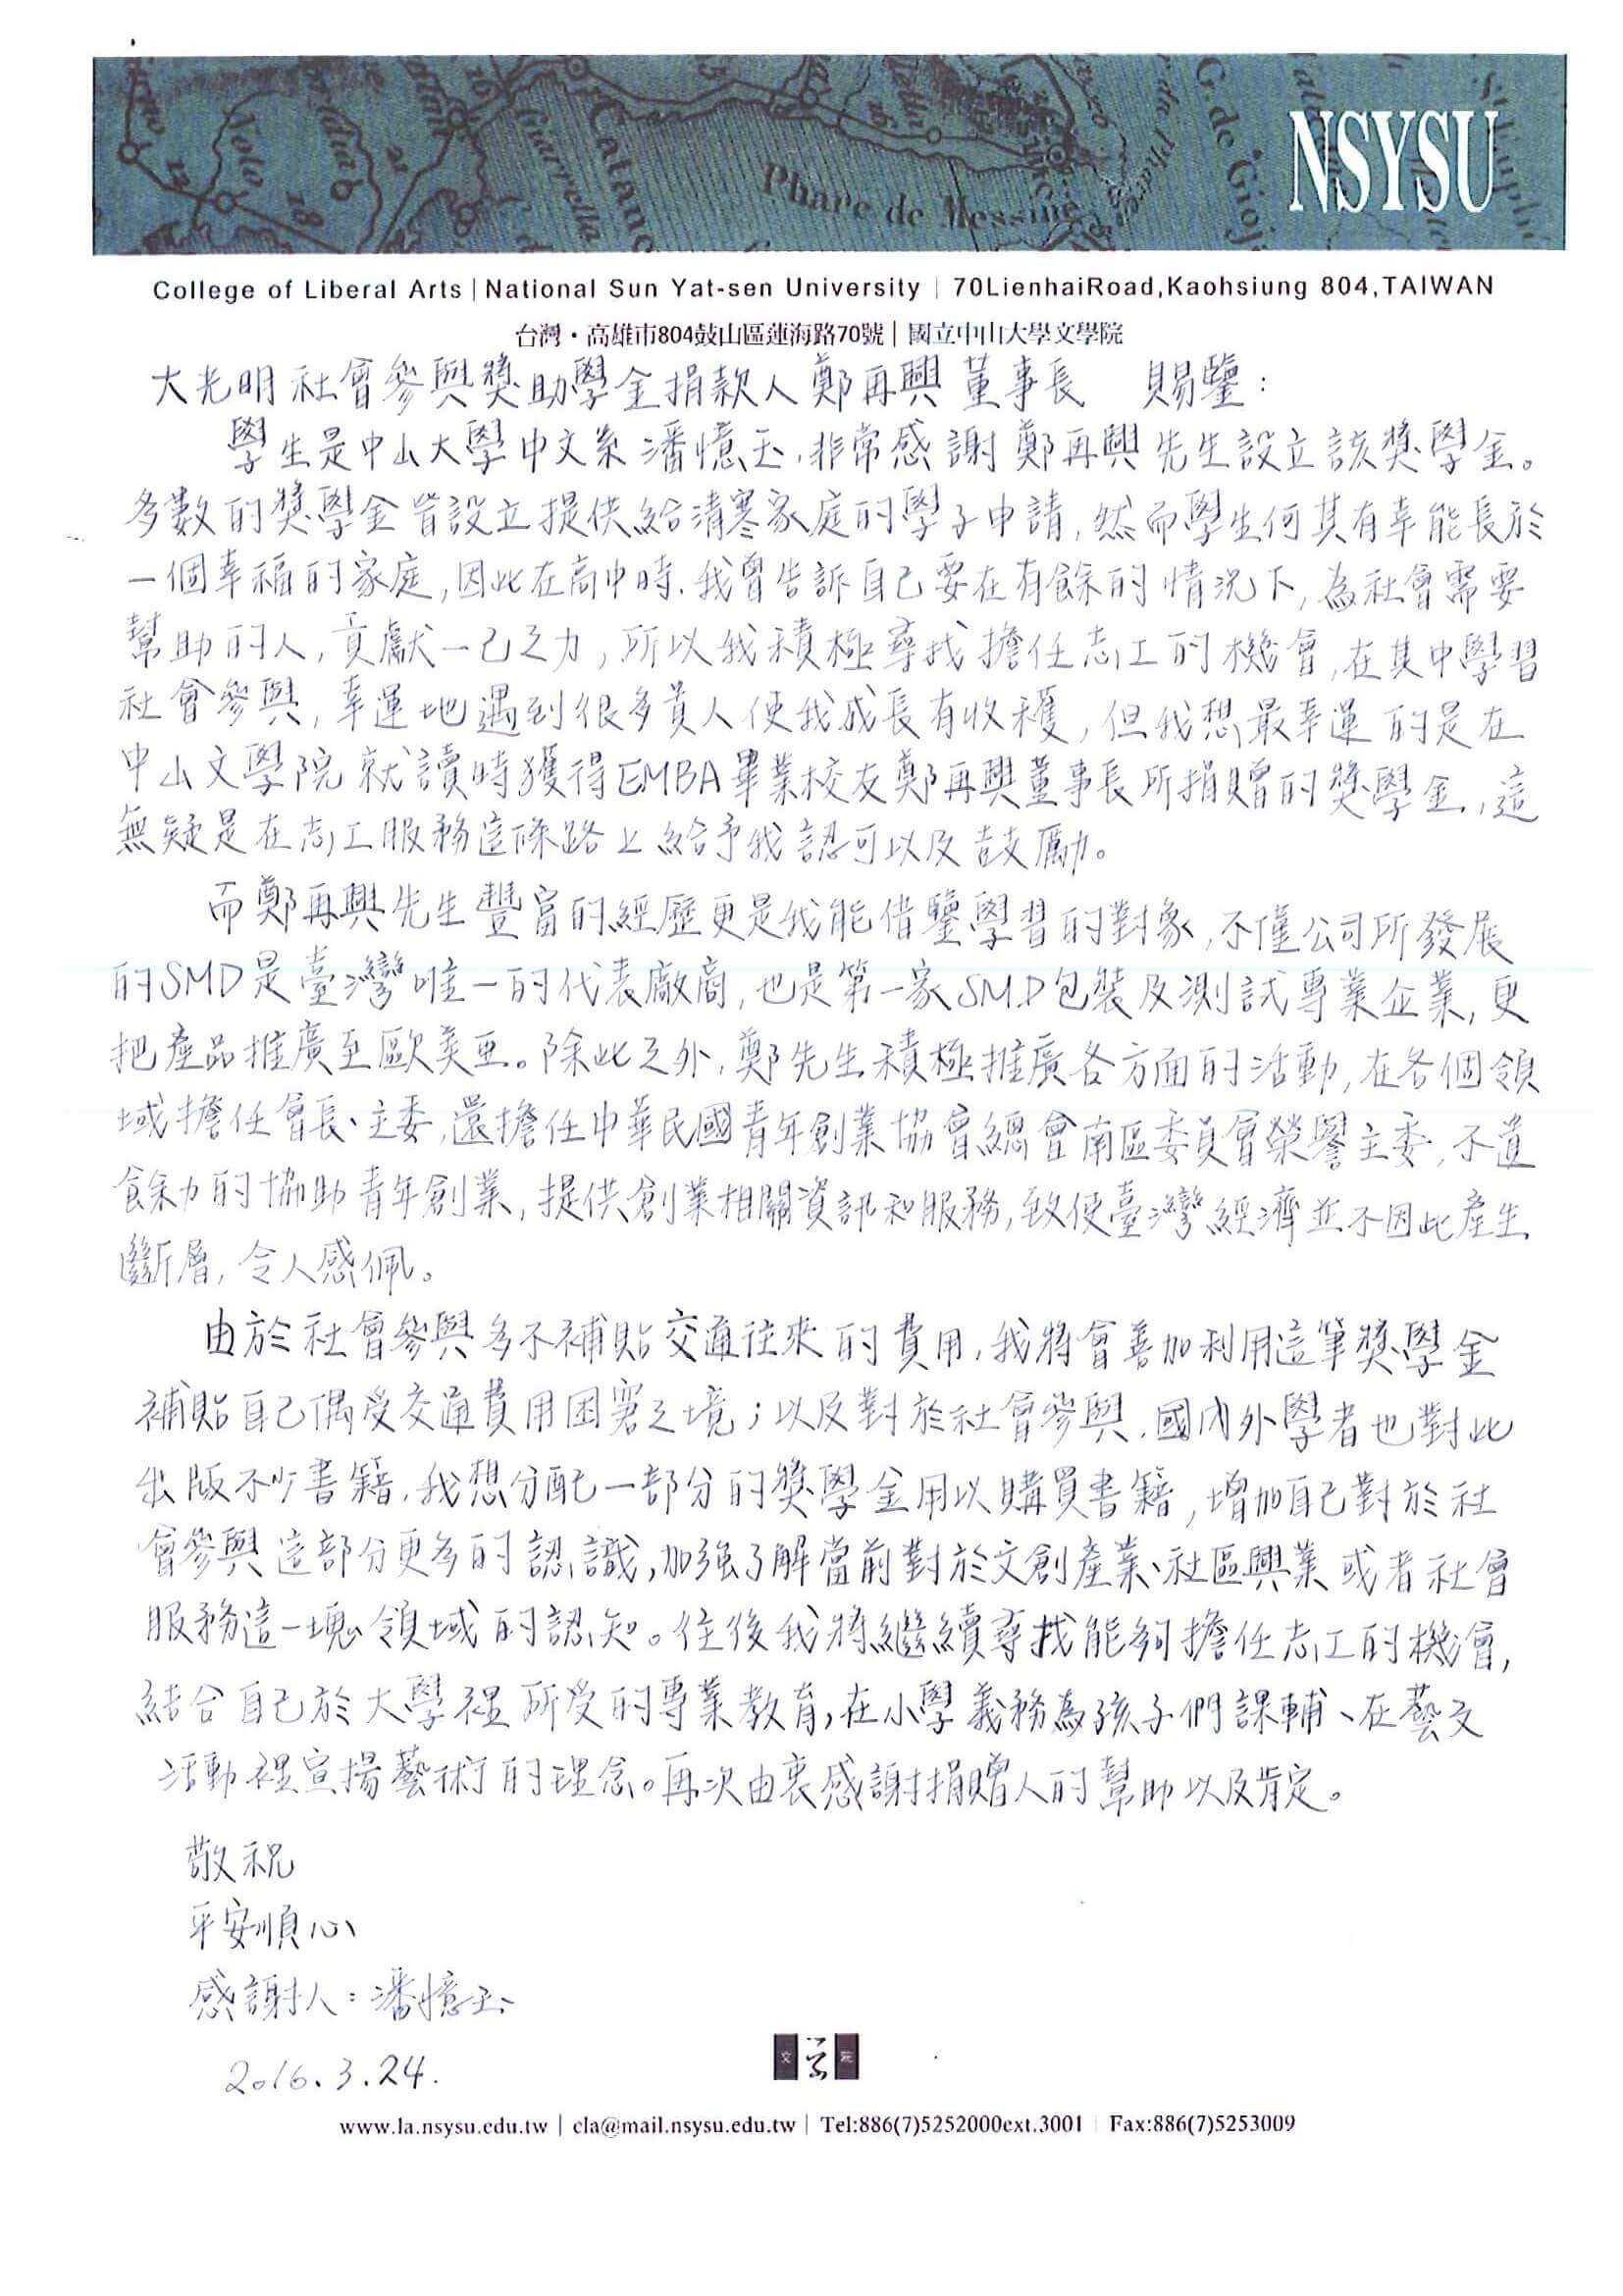 NSYSU
Phare de Messine
College of Liberal Arts | National Sun Yat-sen University | 70LienhaiRoad,Kaohsiung 804,TAIWAN
台灣・高雄市804鼓山區蓮海路70號 | 國立中山大學文學院
大光明社會參與獎助學金捐款人鄭再興董事長 賜鑒:
學生是中山大學中文系潘憶玉,非常感謝鄭再興先生設立該獎學金。
多數的獎學金皆設立提供給清寒家庭的學子申請,然而學生何其有幸能長於
一個幸福的家庭,因此在高中時,我曾告訴自己要在有餘的情況下,為社會需要
幫助的人,貢獻一己之力,所以我積極尋找擔任志工的機會,在其中學習
社會參與,幸運地遇到很多貴人使我成長有收穫,但我想最幸運的是在
中山文學院就讀時獲得EMBA畢業校友鄭再興董事長所捐贈的獎學金,這
無疑是在志工服務這條路上給予我認可以及鼓勵。
而鄭再興先生豐富的經歷更是我能借鑒學習的對象,不僅公司所發展
的SMD是臺灣唯一的代表廠商,也是第一家SMD包裝及測試專業企業,更
把產品推廣至歐美亞。除此之外,鄭先生積極推廣各方面的活動,在各個領
域擔任會長、主委,還擔任中華民國青年創業協會總會南區委員會榮譽主委,不遺
餘力的協助青年創業,提供創業相關資訊和服務,致使臺灣經濟並不因此產生
斷層,令人感佩。
由於社會參與多不補貼交通往來的費用,我將會善加利用這筆獎學金
補貼自己偶受交通費用困窘之境;以及對於社會參與,國內外學者也對此
出版不少書籍,我想分配一部分的獎學金用以購買書籍,增加自己對於社
會參與這部分更多的認識,加強了解當前對於文創產業、社區興業或者社會
服務這一塊領域的認知。往後我將繼續尋找能夠擔任志工的機會,
結合自己於大學裡所受的專業教育,在小學義務為孩子們課輔、在藝文
活動裡宣揚藝術的理念。再次由衷感謝捐贈人的幫助以及肯定。
敬祝
平安順心
感謝人:潘憶玉
2016.3.24.
文 學 院
www.la.nsysu.edu.tw | cla@mail.nsysu.edu.tw | Tel:886(7)5252000ext.3001 | Fax:886(7)5253009